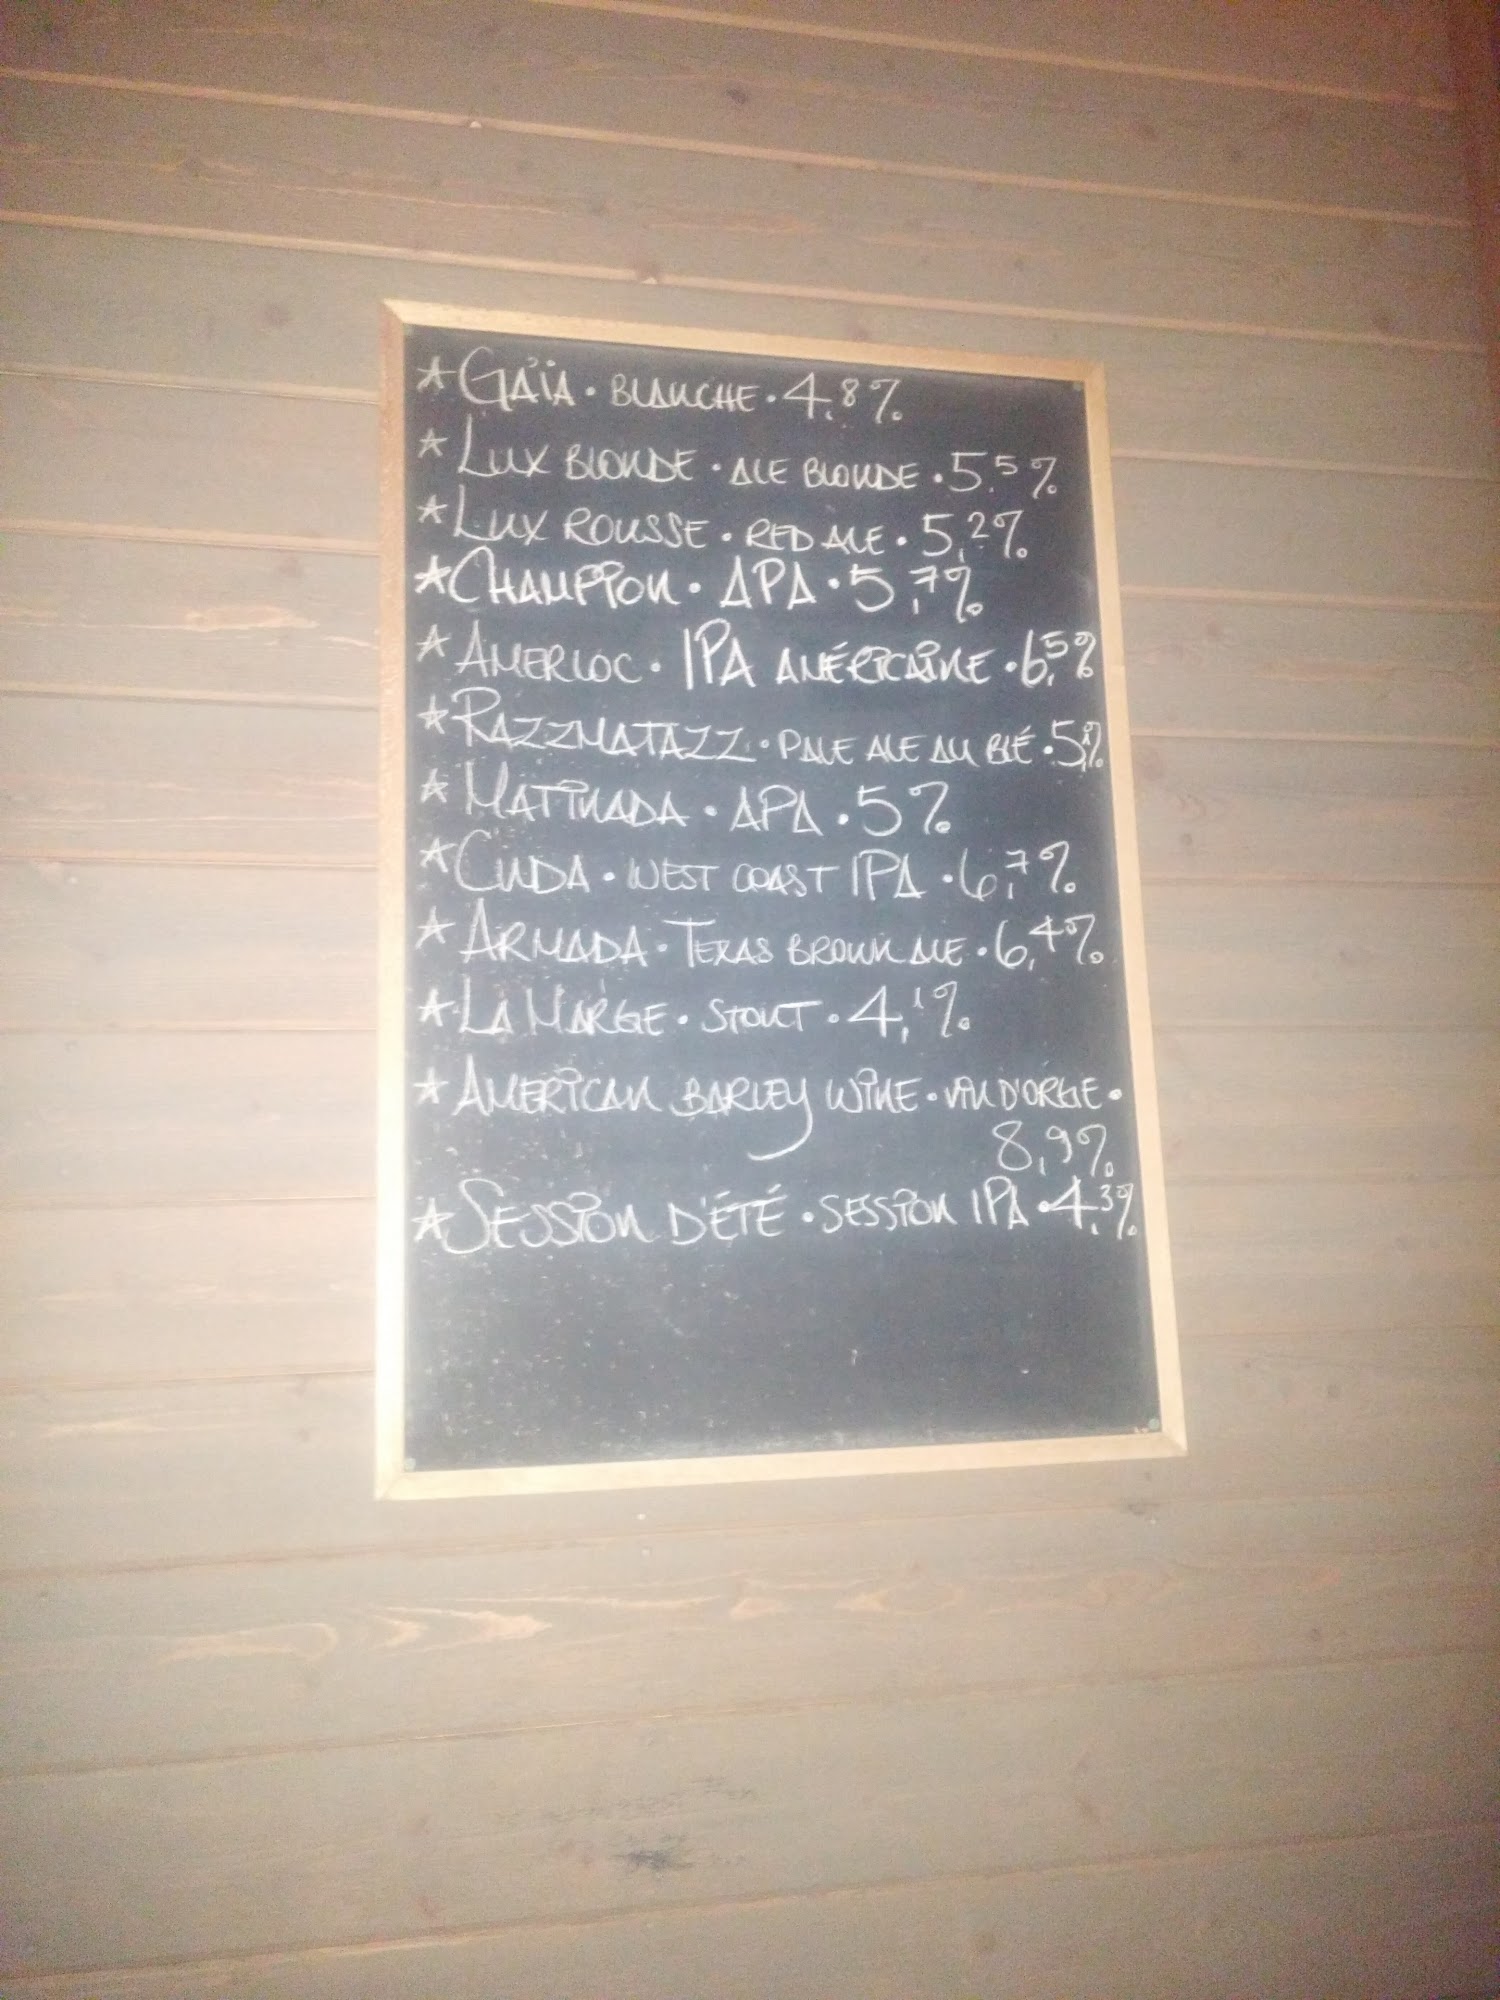 ★ Gaïa • BLANCHE • 4,8%
★ LUX BLONDE • ALE BLONDE • 5,5%
★ LUX ROUSSE • RED ALE • 5,2%
★ CHAMPION • APA • 5,7%
★ AMERLOC • IPA AMÉRICAINE • 6,5%
★ RAZZMATAZZ • PALE ALE AU BLÉ •
★ MATINADA • APA • 5%
★ CUDA • WEST COAST IPA • 6,7%
★ ARMADA • TEXAS BROWN ALE • 6,4%
★ LA MARGE • STOUT • 4,1%
★ AMERICAN BARLEY WINE • VIN D'ORGE •
8,9%
★ SESSION D'ÉTÉ • SESSION IPA • 4,3%